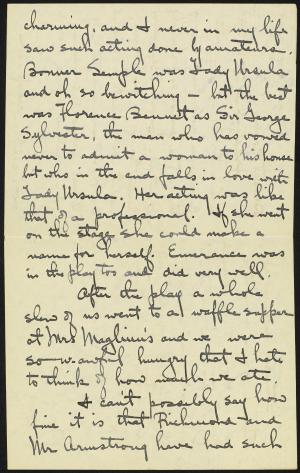 charming, and I never in my life
saw such acting done by amateurs.
Bonner Semple was Lady Ursula
and oh so bewitching – but the best
was Florence Bennett as Sir George
Sylvester, the man who has vowed
never to admit a woman to his house
but who in the end falls in love with
Lady Ursula. Her acting was like
that of a professional. If she went
on the stage she could make a
name for herself. Emerance was
in the play too and did very well.
After the play a whole
slew of us went to a waffle supper
at Mrs and we were
so-w-awful hungry that I hate
to think of how much we ate.
I can't possibly say how
fine it is that Richmond and
Mr Armstrong have had such